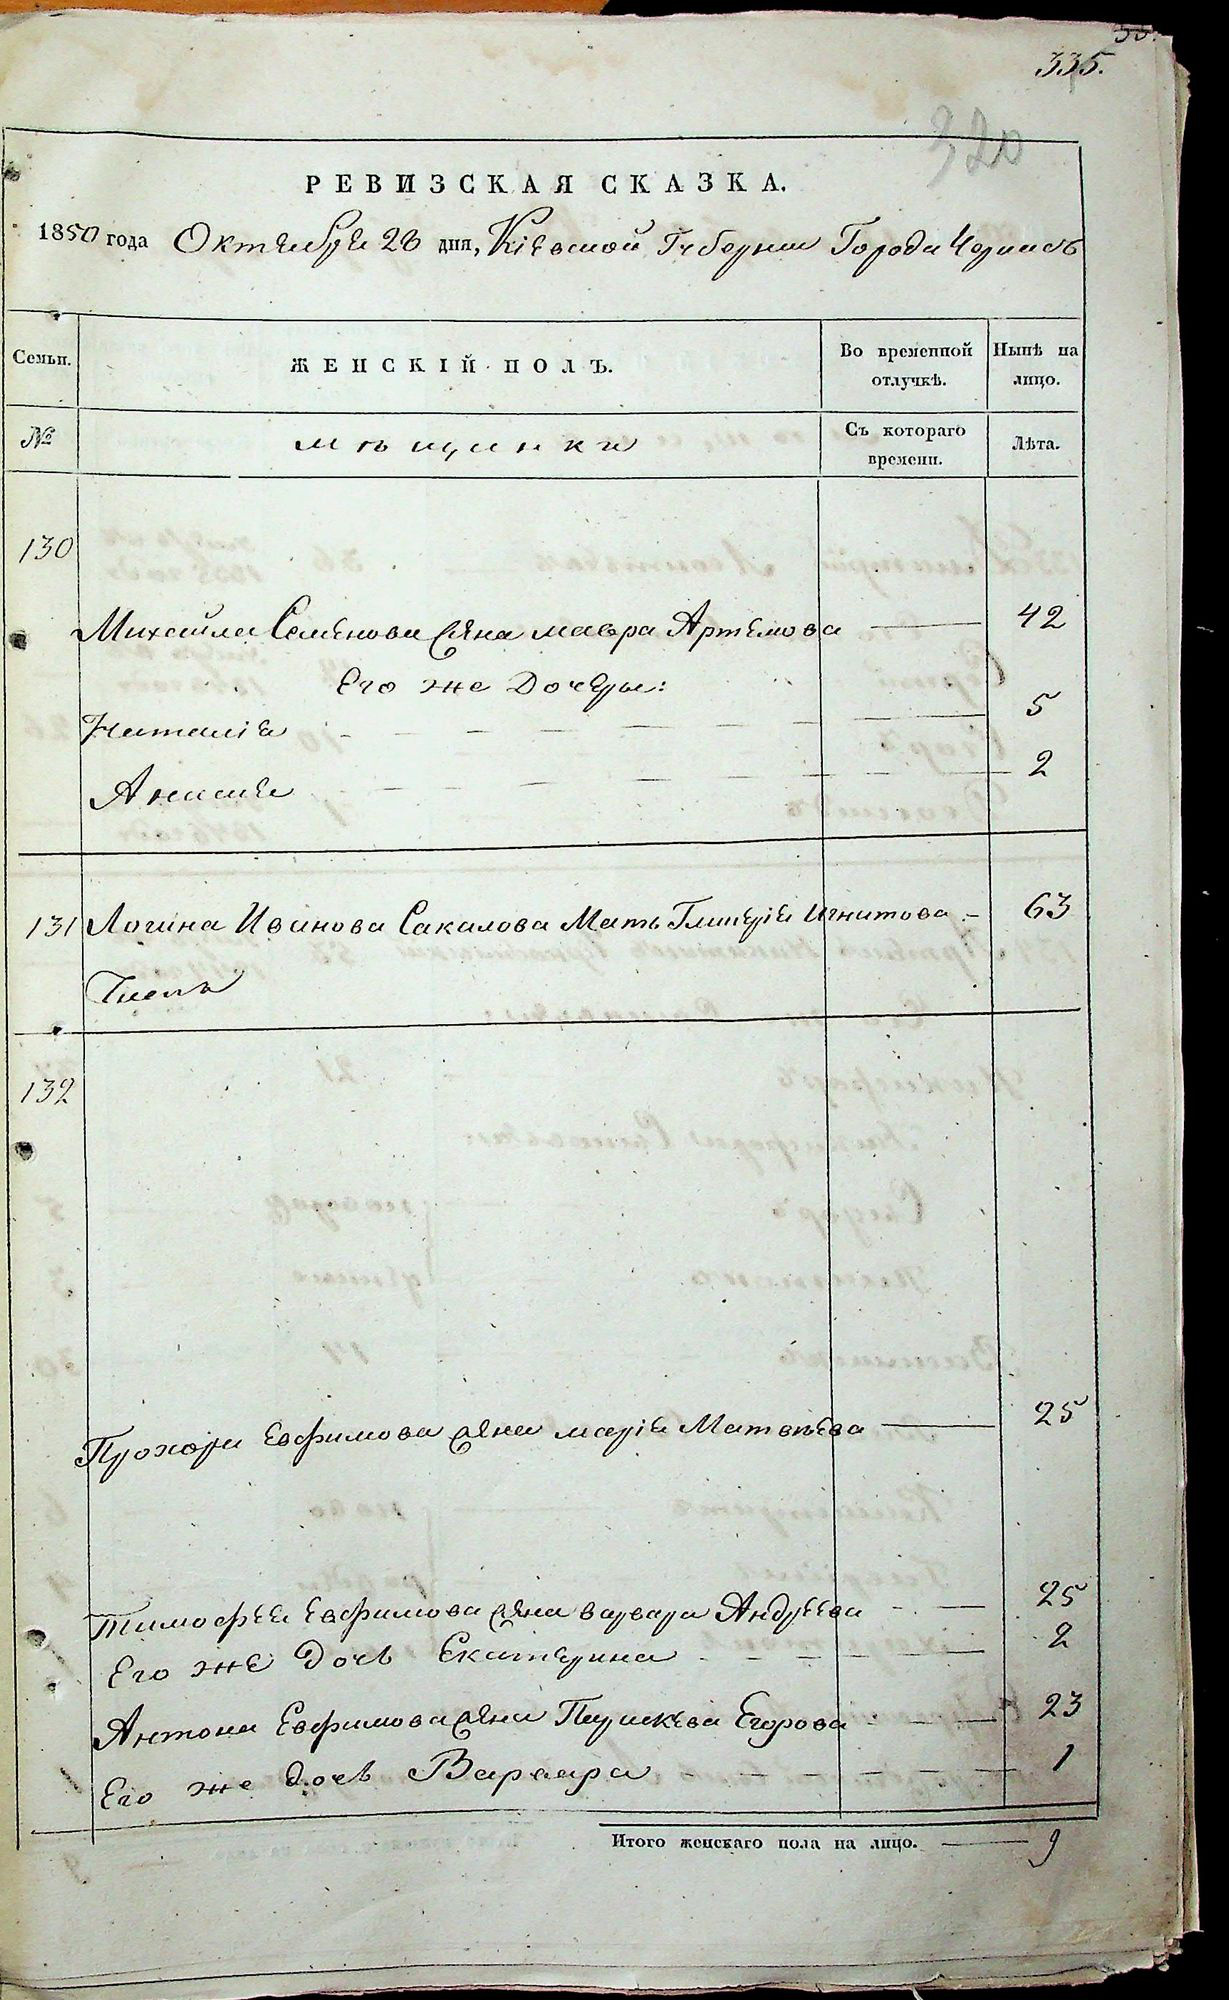 335.
320
РЕВИЗСКАЯ СКАЗКА.
1850 года Октября 28 дня, Кіевской Губерніи Города Черкасъ
Семьи. ЖЕНСКІЙ ПОЛЪ. Во временной отлучкѣ. Нынѣ на лицо.
№ мѣщанки Съ котораго времени. Лѣта.
130
Михайла Семенова жена мавра Артемова 42
Его же Дочери:
Наталія 5
Анна 2
131 Логина Иванова Сакалова Мать Гликерія Игнатова 63
132
Прохора Евфимова жена марія Матвѣева 25
Тимофея Евфимова жена варвара Андреева 25
Его же дочь Екатерина 2
Антона Евфимова жена Параскева Егорова 23
Его же дочь Варвара 1
Итого женскаго пола на лицо. 9